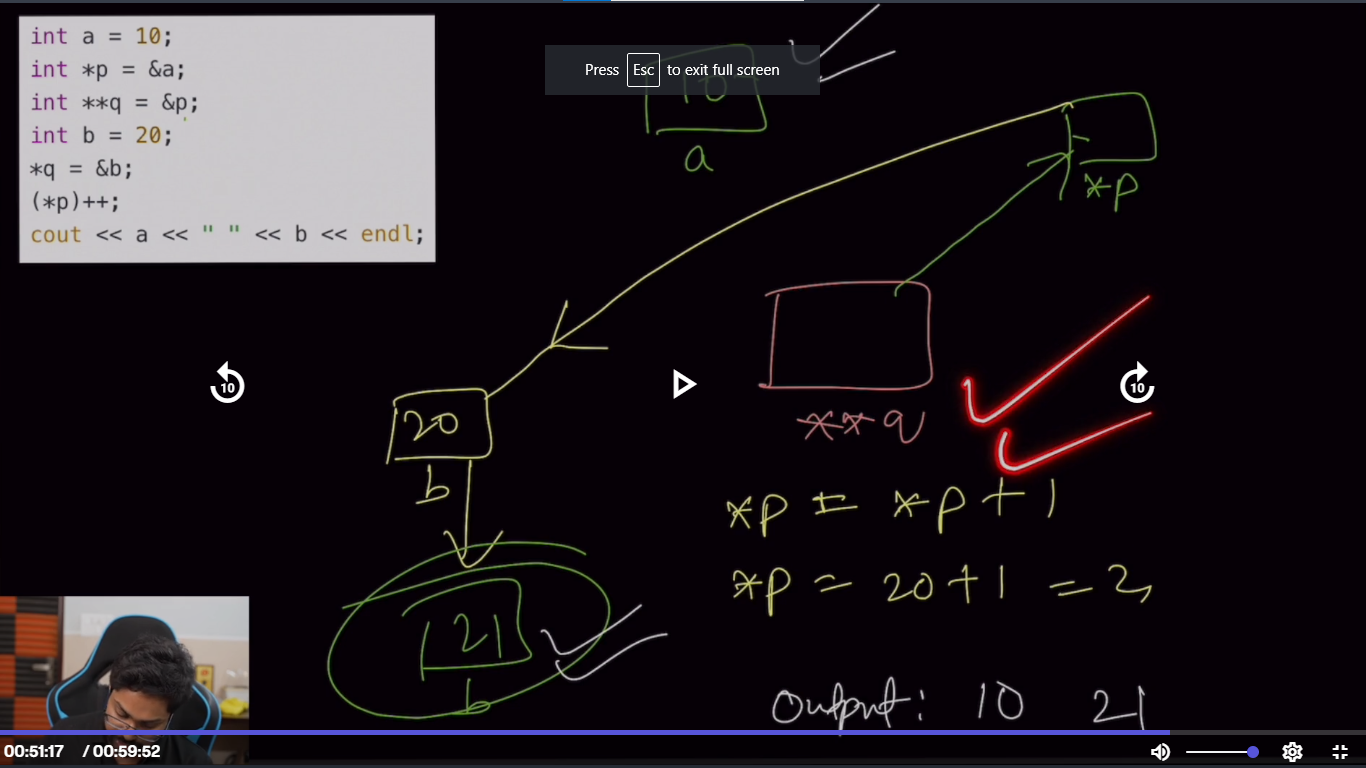 int a = 10;
int *p = &a;
int **q = &p;
int b = 20;
*q = &b;
(*p)++;
cout << a << " " << b << endl;
Press Esc to exit full screen
10
a
*p
**q
20
b
*p = *p + 1
*p = 20 + 1 = 21
21
b
Output: 10 21
10
10
00:51:17 / 00:59:52